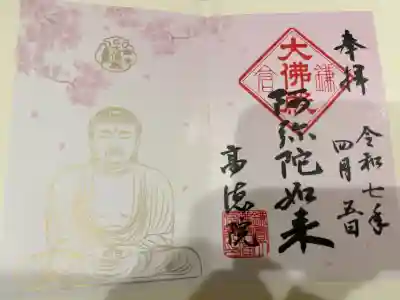 奉拝
令和七年
四月五日
大佛殿
鎌倉
阿弥陀如来
高徳院